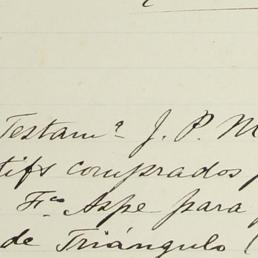 Testamᵃ J. P. M
tifs comprados
Fᶜᵒ Aspe para
de Triángulo (